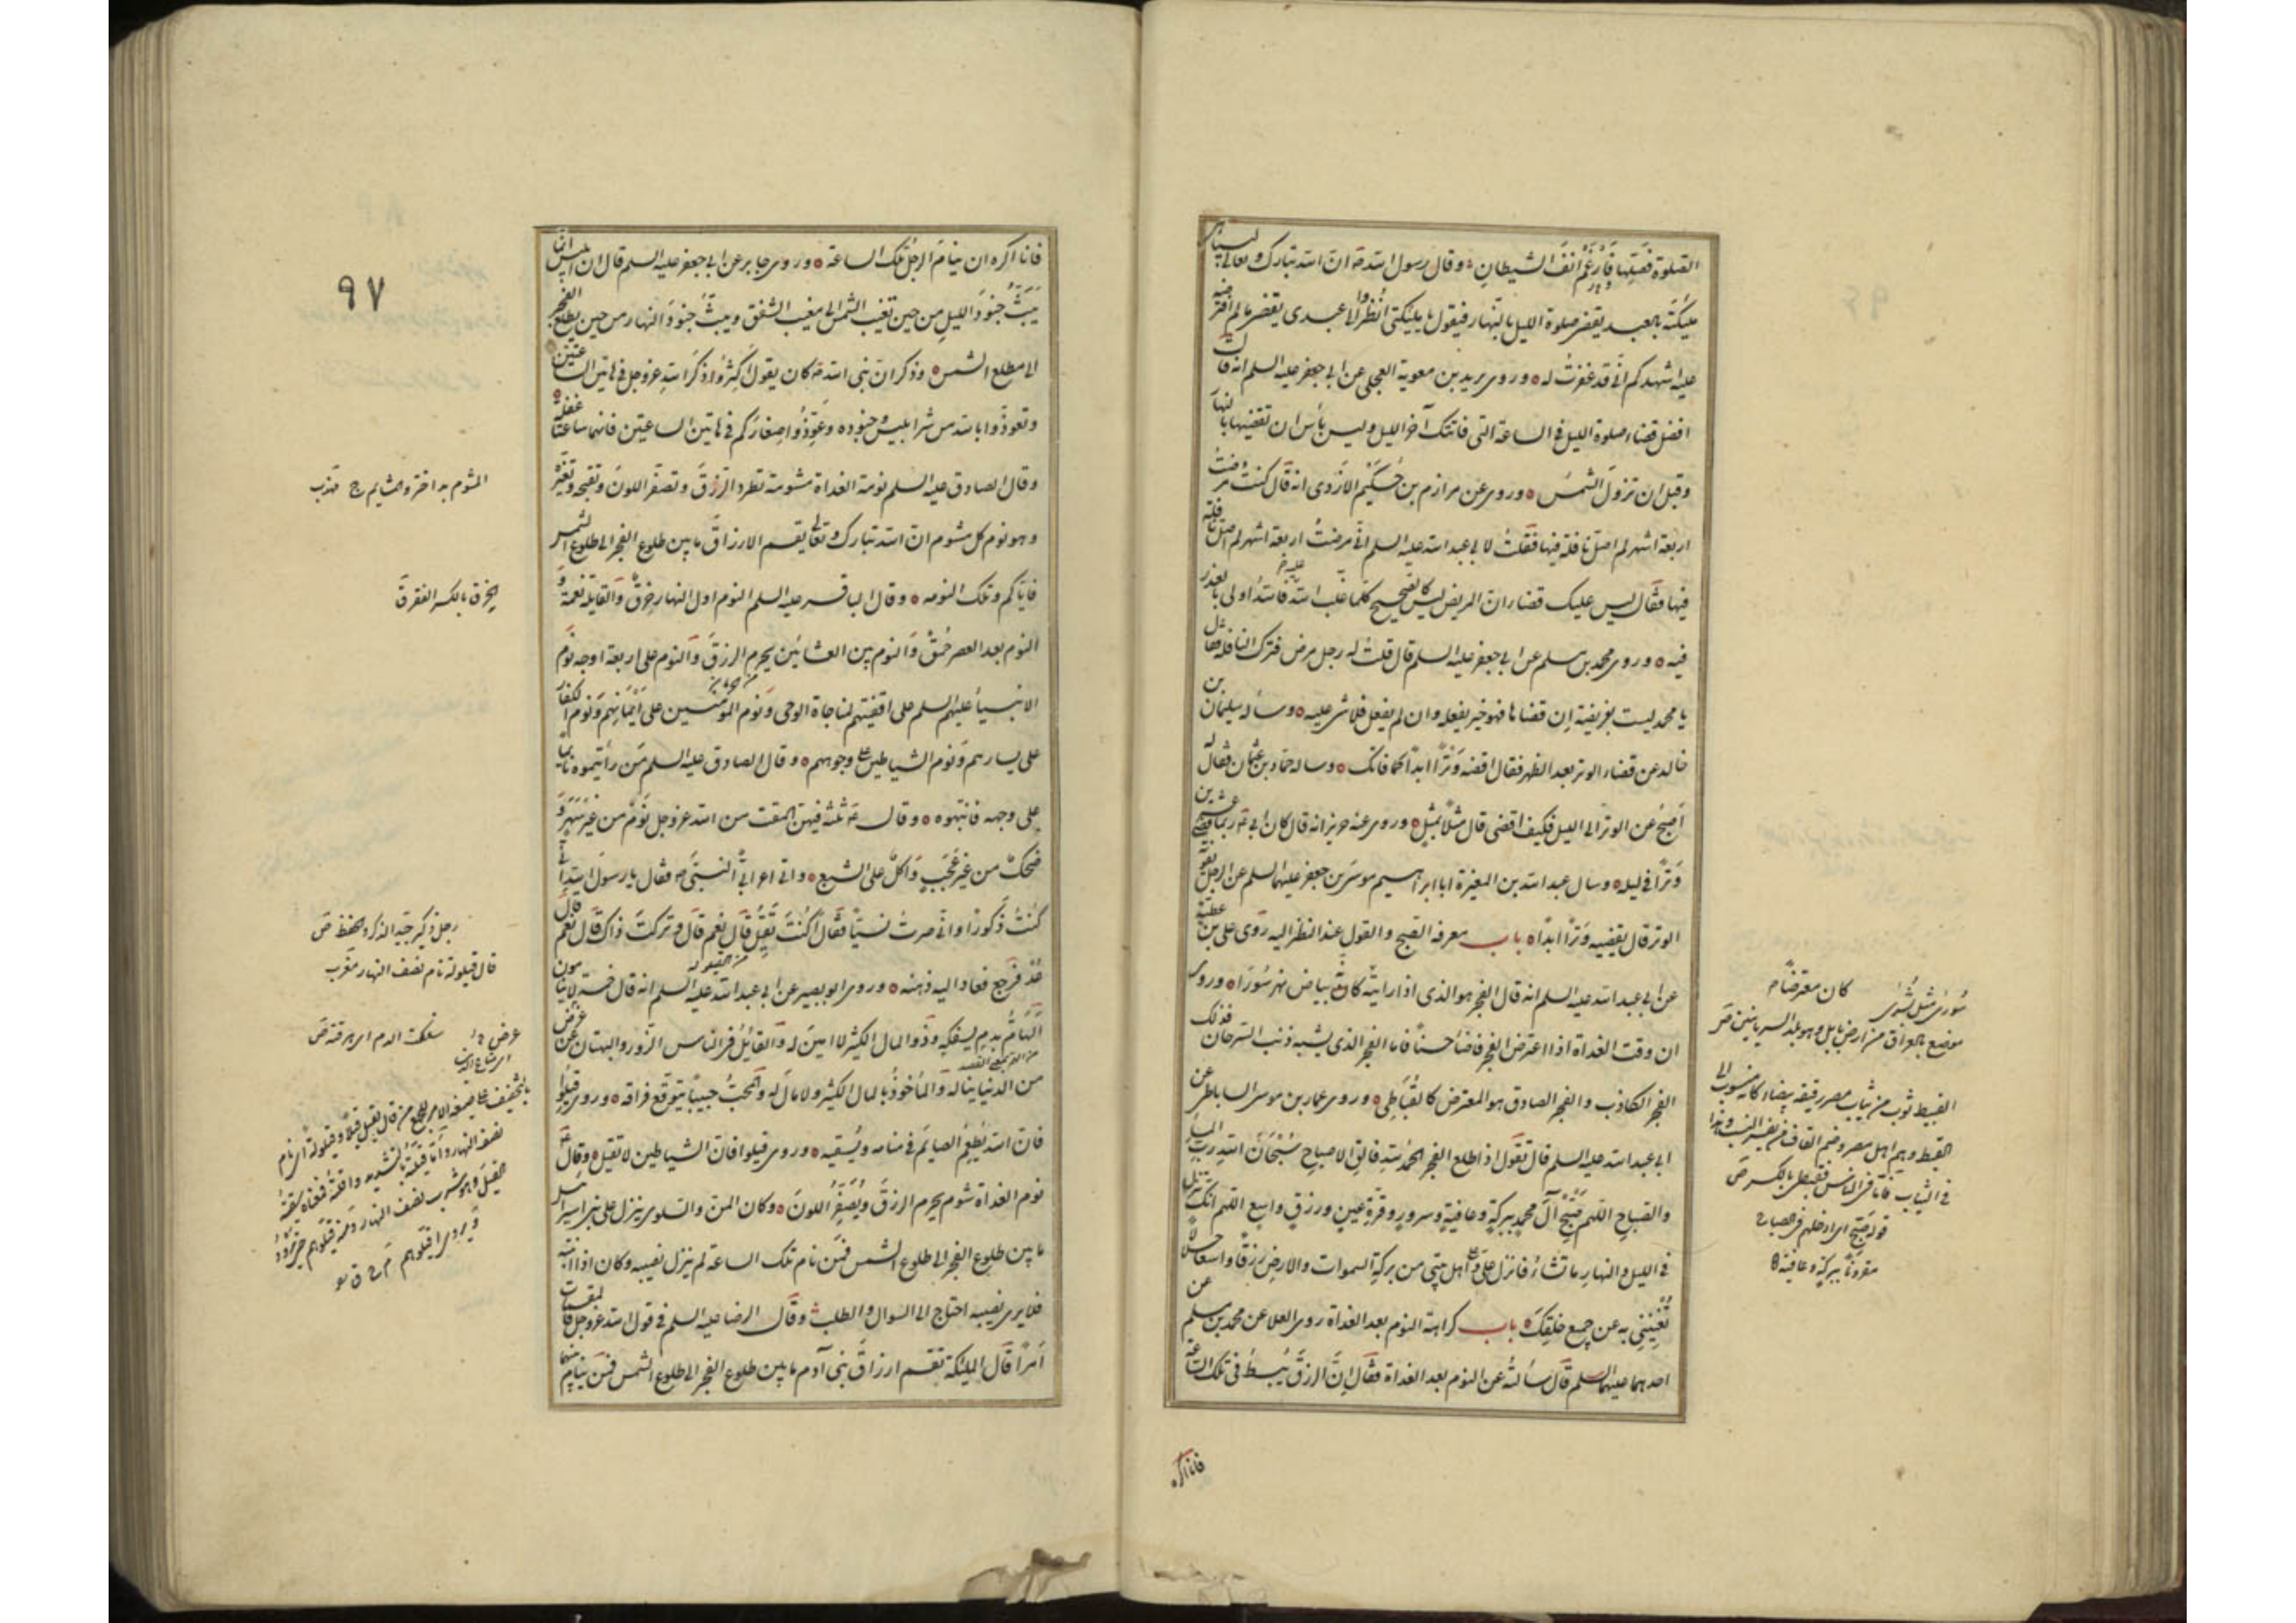 الصلوة فصلها فارغم انف الشيطان وقال رسول الله ص ان الله تبارك وتعالى ليباهى
مليكته بالعبد يقضى صلوة الليل بالنهار فيقول يا مليكتى انظروا الى عبدى يقضى ما لم افترضه
عليه اشهدكم انى قد غفرت له وروى بريد بن معوية العجلى عن ابى جعفر عليه السلم انه قال
افضل قضاء صلوة الليل فى الساعة التى فاتتك آخر الليل وليس بأس ان تقضيها بالنهار
وقبل ان تزول الشمس وروى عن مرازم بن حكيم الازدى انه قال كنت مرضت
اربعة اشهر لم اصل نافلة فيها فقلت لابى عبد الله عليه السلم انى مرضت اربعة اشهر لم اصل نافلة
فيها فقال ليس عليك قضاء ان المريض ليس كالصحيح كلما غلب الله عليه فالله اولى بالعذر
فيه وروى محمد بن مسلم عن ابى جعفر عليه السلم قال قلت له رجل مرض فترك النافلة فقال
يا محمد ليست بفريضة ان قضاها فهو خير يفعله وان لم يفعل فلا شىء عليه وساله سليمان بن
خالد عن قضاء الوتر بعد الظهر فقال اقضه وترا ابدا كما فاتك وساله حماد بن عثمان فقال له
اصبح عن الوتر الى الليل فكيف اقضى قال مثلا بمثل وروى عنه حريز انه قال كان ابى ع ربما قضى عشرين
وترا فى ليلة وسال عبد الله بن المغيرة ابا ابراهيم موسى بن جعفر عليهما السلم عن الرجل يفوته
الوتر قال يقضيه وترا ابدا باب معرفة الصبح والقول عند النظر اليه روى على بن عطية
عن ابى عبد الله عليه السلم انه قال الفجر هو الذى اذا رايته كان بياض نهر سورا وروى
ان وقت الغداة اذا اعترض الفجر فاضاء حسنا فاما الفجر الذى يشبه ذنب السرحان فذلك
الفجر الكاذب والفجر الصادق هو المعترض كالقباطى وروى عمار بن موسى الساباطى عن
ابى عبد الله عليه السلم قال تقول اذا طلع الفجر الحمد لله فالق الاصباح سبحان الله رب المساء
والصباح اللهم صبح آل محمد ببركة وعافية وسرور وقرة عين ورزق واسع اللهم انك تنزل
فى الليل والنهار ما تشاء فانزل على وعلى اهل بيتى من بركة السموات والارض رزقا واسعا حلالا
تغنينى به عن جميع خلقك باب كراهة النوم بعد الغداة روى العلا عن محمد بن مسلم عن
احدهما عليهما السلم قال سألته عن النوم بعد الغداة فقال ان الرزق يبسط فى تلك الساعة
فانا اكره
كان معترضا م
سورى مثل بشرى
موضع بالعراق من ارض بابل وهو بلد السريانيين ص
القبط ثوب من ثياب مصر رقيقة بيضاء كانه منسوب الى
القبط وهم اهل مصر وضم القاف من تغيير النسب وهذا
فى الثياب فاما فى الناس فقبطى بالكسر ص
قوله صبح اى ادخلهم فى الصباح
مقرونا ببركة وعافية
٩٧
فانا اكره ان ينام الرجل تلك الساعة وروى جابر عن ابى جعفر عليه السلم قال ان ابليس انما
يبث جنود الليل من حين تغيب الشمس الى مغيب الشفق ويبث جنود النهار من حين يطلع الفجر
الى مطلع الشمس وذكر ان نبى الله ص كان يقول اكثروا ذكر الله عز وجل فى هاتين الساعتين
وتعوذوا بالله من شر ابليس وجنوده وعوذوا صغاركم فى هاتين الساعتين فانهما ساعتا غفلة
وقال الصادق عليه السلم نومة الغداة مشومة تطرد الرزق وتصفر اللون وتقبحه وتغيره
وهو نوم كل مشوم ان الله تبارك وتعالى يقسم الارزاق ما بين طلوع الفجر الى طلوع الشمس
فاياكم وتلك النومه وقال الباقر عليه السلم النوم اول النهار خرق والقايلة نعمة و
النوم بعد العصر حمق والنوم بين العشائين يحرم الرزق والنوم على اربعة اوجه نوم
الانبياء عليهم السلم على اقفيتهم لمناجاة الوحى ونوم المؤمنين على ايمانهم ونوم الكفار
على يسارهم ونوم الشياطين على وجوههم وقال الصادق عليه السلم من رأيتموه نايما
على وجهه فانبهوه وقال ع ثلثة فيهن المقت من الله عز وجل نوم من غير سهر و
ضحك من غير عجب واكل على الشبع واتى اعرابى النبى ص فقال يا رسول الله انى
كنت ذكورا وانى صرت نسيا فقال اكنت تقيل قال نعم قال وتركت ذاك قال نعم قال
عد فرجع فعاد اليه ذهنه وروى ابو بصير عن ابى عبد الله عليه السلم انه قال خمسة لا ينامون
الهام بدم يسفكه وذو المال الكثير لا امين له والقائل فى الناس الزور والبهتان عن عرض
من الدنيا يناله والمأخوذ بالمال الكثير ولا مال له والمحب حبيبا يتوقع فراقه وروى قيلوا
فان الله يطعم الصايم فى منامه ويسقيه وروى قيلوا فان الشياطين لا تقيل وقال ع
نوم الغداة شوم يحرم الرزق ويصفر اللون وكان المن والسلوى ينزل على بنى اسرائيل
ما بين طلوع الفجر الى طلوع الشمس فمن نام تلك الساعة لم ينزل نصيبه وكان اذا انتبه
فلا يرى نصيبه احتاج الى السوال والطلب وقال الرضا عليه السلم فى قول الله عز وجل فالمقسمات
امرا قال المليكة تقسم ارزاق بنى آدم ما بين طلوع الفجر الى طلوع الشمس فمن ينام فيما
الخرق بالكسر الفقر ق
رجل ذكير جيد الذكر والحفظ ص
قال قيلولة نام نصف النهار مغرب
سفكت الدم اى هرقته ص